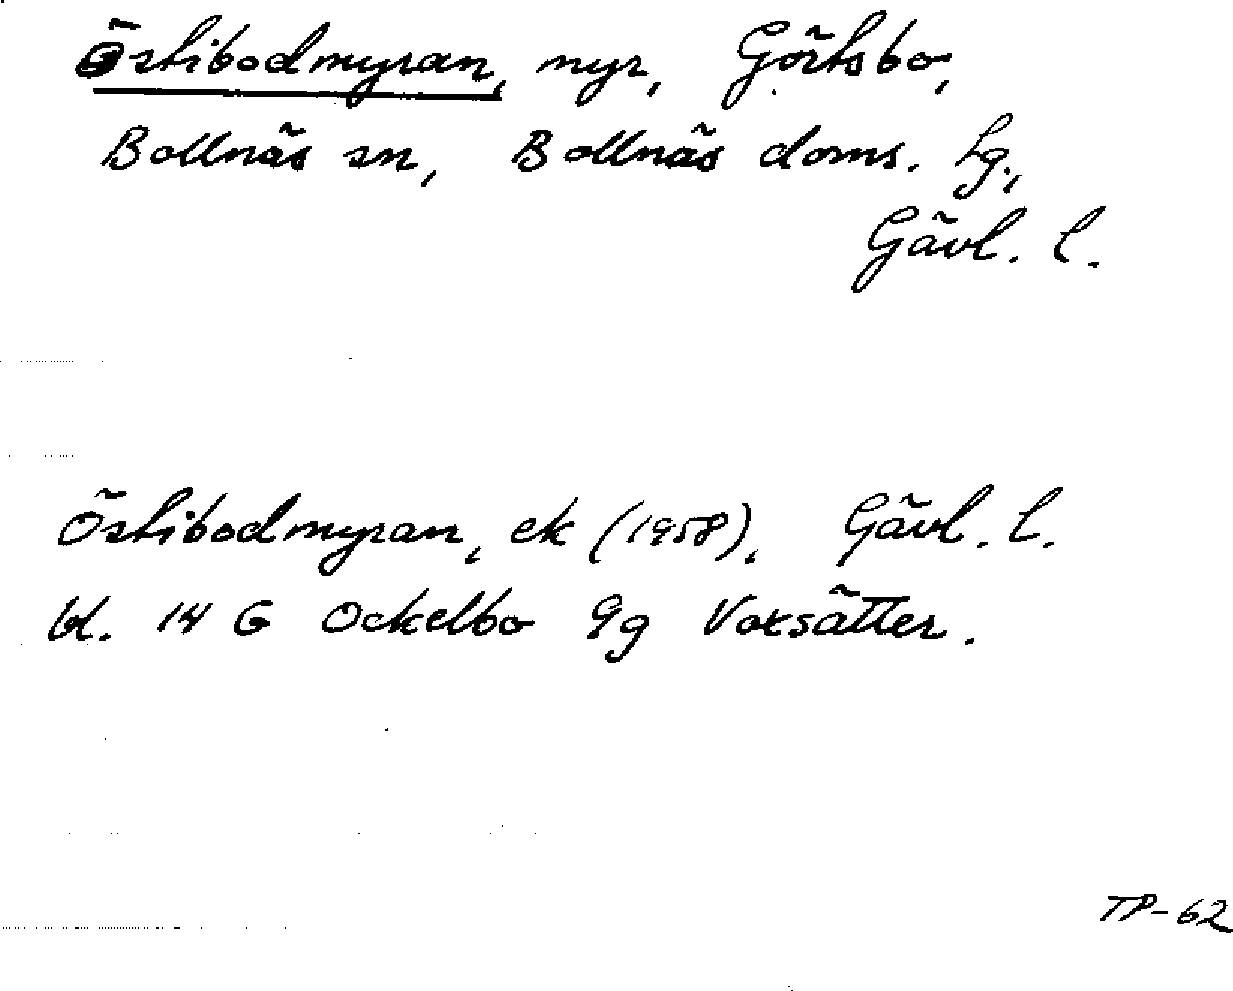 Östibodmyran, myr, Görtsbo,
Bollnäs sn, Bollnäs doms. Lg.,
Gävl. l.
Östibodmyran, ek (1958), Gävl. l.
bl. 14 G Ockelbo 9g Voxsätter.
TP-62